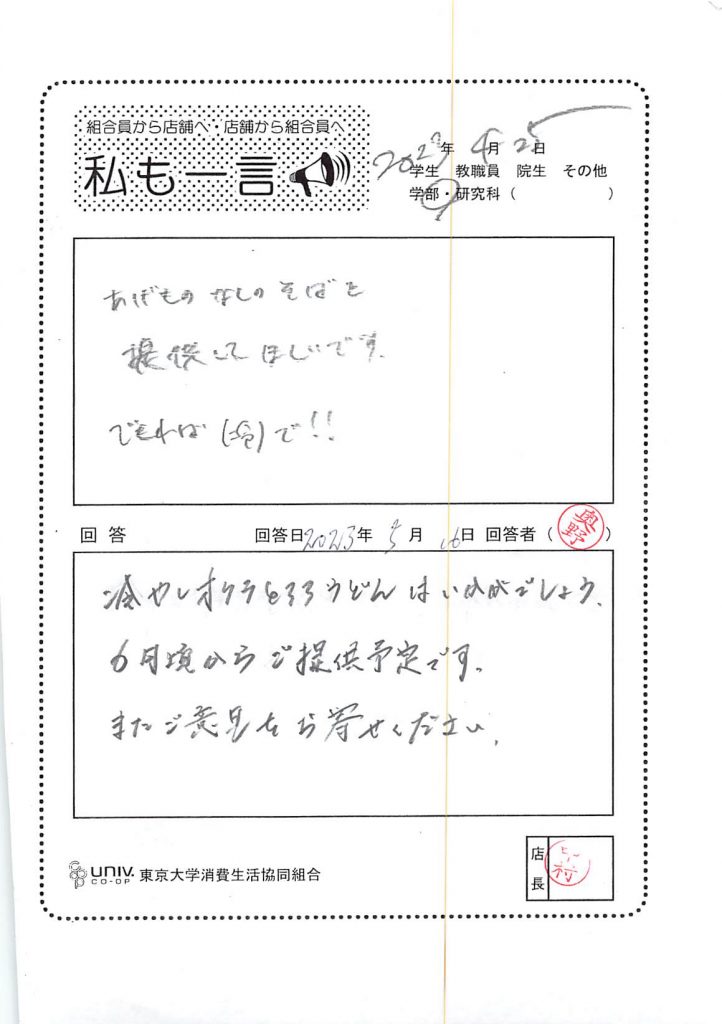 組合員から店舗へ・店舗から組合員へ
私も一言
2023年 4月 2 日
学生 教職員 院生 その他
学部・研究科 ( )
あげもの なしの そばを
提供して ほしいです。
できれば (冷)で!!
回答 回答日 2023年 5月 16日 回答者 (奥野)
冷やしオクラとろろうどんは いかがでしょう。
6月頃から ご提供予定です。
またご意見を お寄せください。
UNIV. CO-OP 東京大学消費生活協同組合
店長 村